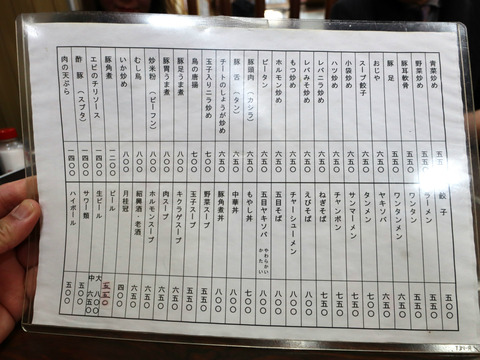 青菜炒め 五五
野菜炒め 五五〇
豚耳軟骨 五五〇
豚足 五五〇
おじや 六五〇
スープ餃子 六五〇
小袋炒め 六五〇
ハツ炒め 六五〇
レバニラ炒め 六五〇
レバみそ炒め 六五〇
もつ炒め 六五〇
ホルモン炒め 六五〇
ピータン 六五〇
豚頭肉(カシラ) 六五〇
豚舌(タン) 六五〇
チートのしょうが炒め 六五〇
玉子入りニラ炒め 七〇〇
鳥の唐揚 七〇〇
豚足うま煮 八〇〇
豚胃うま煮 八〇〇
炒米粉(ビーフン) 八〇〇
むし鳥 八〇〇
いか炒め 八〇〇
豚角煮 一二〇〇
エビのチリソース 一四〇〇
酢豚(スブタ) 一四〇〇
肉の天ぷら 一四〇〇
餃子 五〇〇
ラーメン 五五〇
ワンタン 五五〇
ワンタンメン 六五〇
ヤキソバ 六五〇
タンメン 六五〇
サンマーメン 六五〇
チャンポン 七五〇
ねぎそば 七五〇
えびそば 八〇〇
チャーシューメン 八〇〇
五目そば 八〇〇
五目ヤキソバ やわらかい かたい 八〇〇
もやし丼 七〇〇
中華丼 八〇〇
豚角煮丼 八〇〇
野菜スープ 五五〇
玉子スープ 五五〇
キクラゲスープ 六五〇
肉スープ 六五〇
ホルモンスープ 六五〇
紹興酒・老酒 六五〇
月桂冠 四〇〇
ビール 五五〇
生ビール 大八〇〇 中六五〇
サワー類 五〇〇
ハイボール 五〇〇